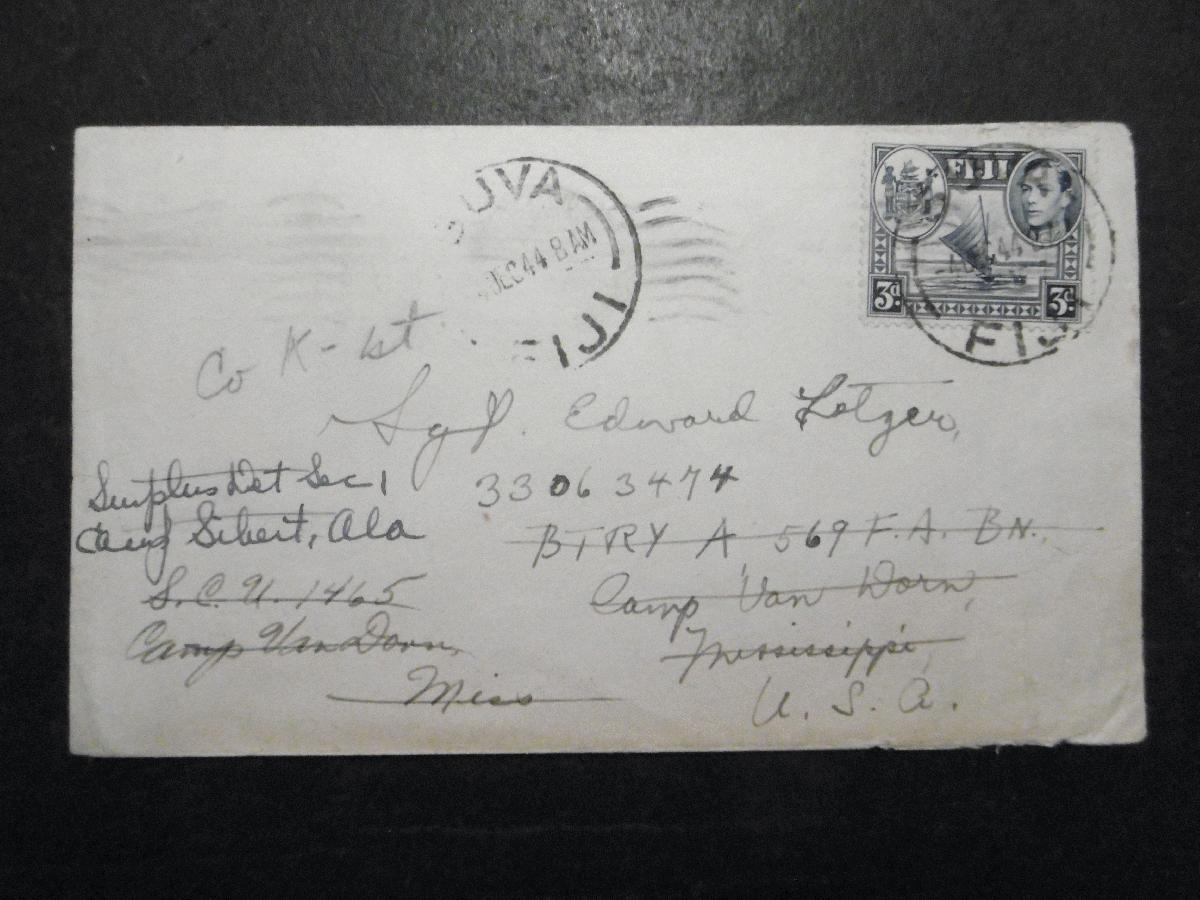 SUVA
DEC 44 8 AM
FIJI
FIJI
DEC 44
3d.
3d.
FIJI
Co K - 1st
Sgt. Edward Lotzer,
33063474
BTRY A 569 F.A. BN.
Camp Van Dorn,
Mississippi,
U. S. A.
Surplus Det Sec 1
Camp Sibert, Ala
S.C.U. 1465
Camp Van Dorn,
Miss